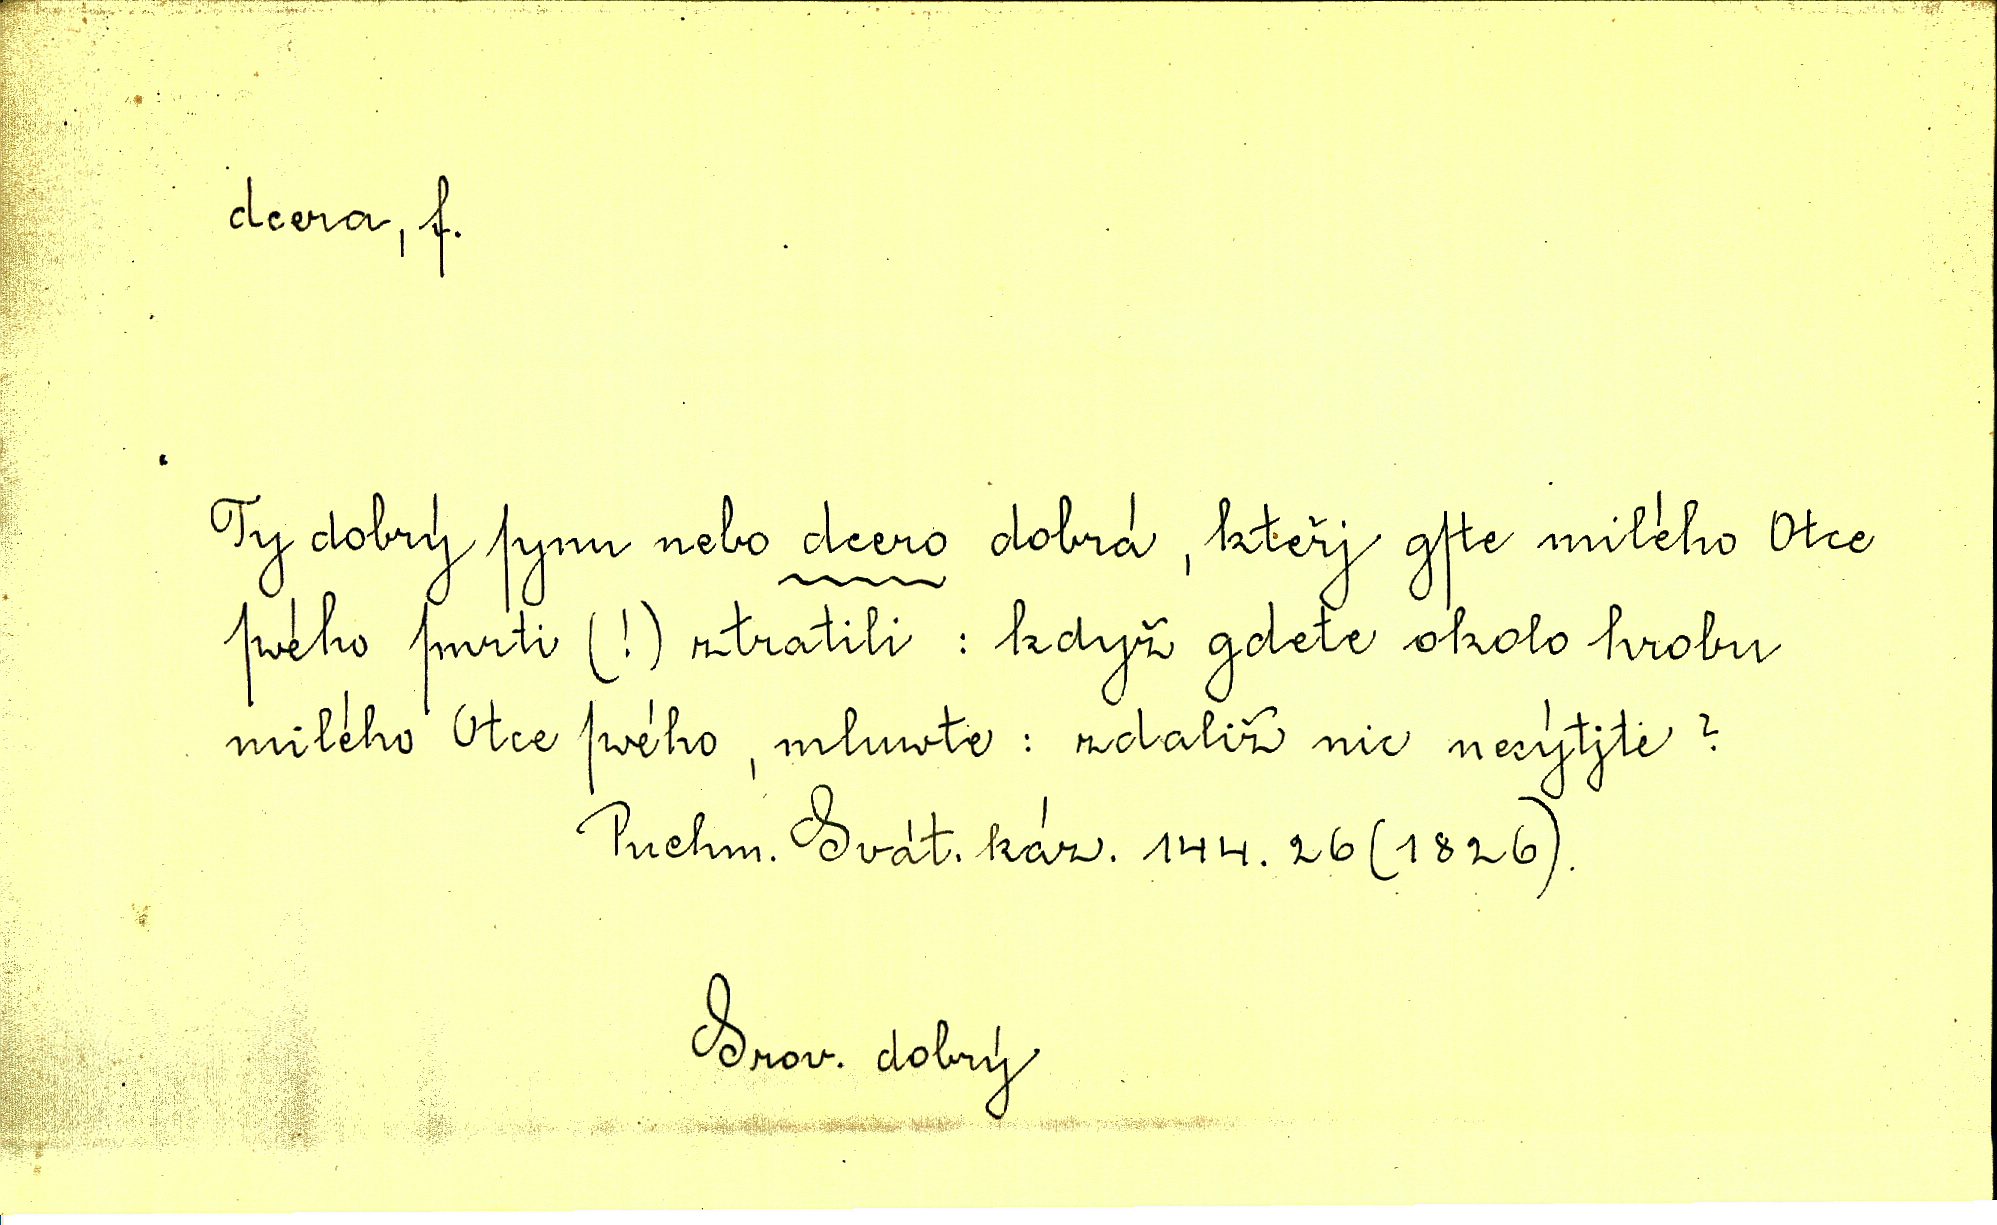 dcera, f.
Ty dobrý ſynu nebo dcero dobrá, kteřj gſte milého Otce
ſwého ſmrti (!) ztratili : když gdete okolo hrobu
milého Otce ſwého, mluwte : zdaliž nic necýtjte ?
Puchm. Svát. káz. 144. 26 (1826).
Srov. dobrý